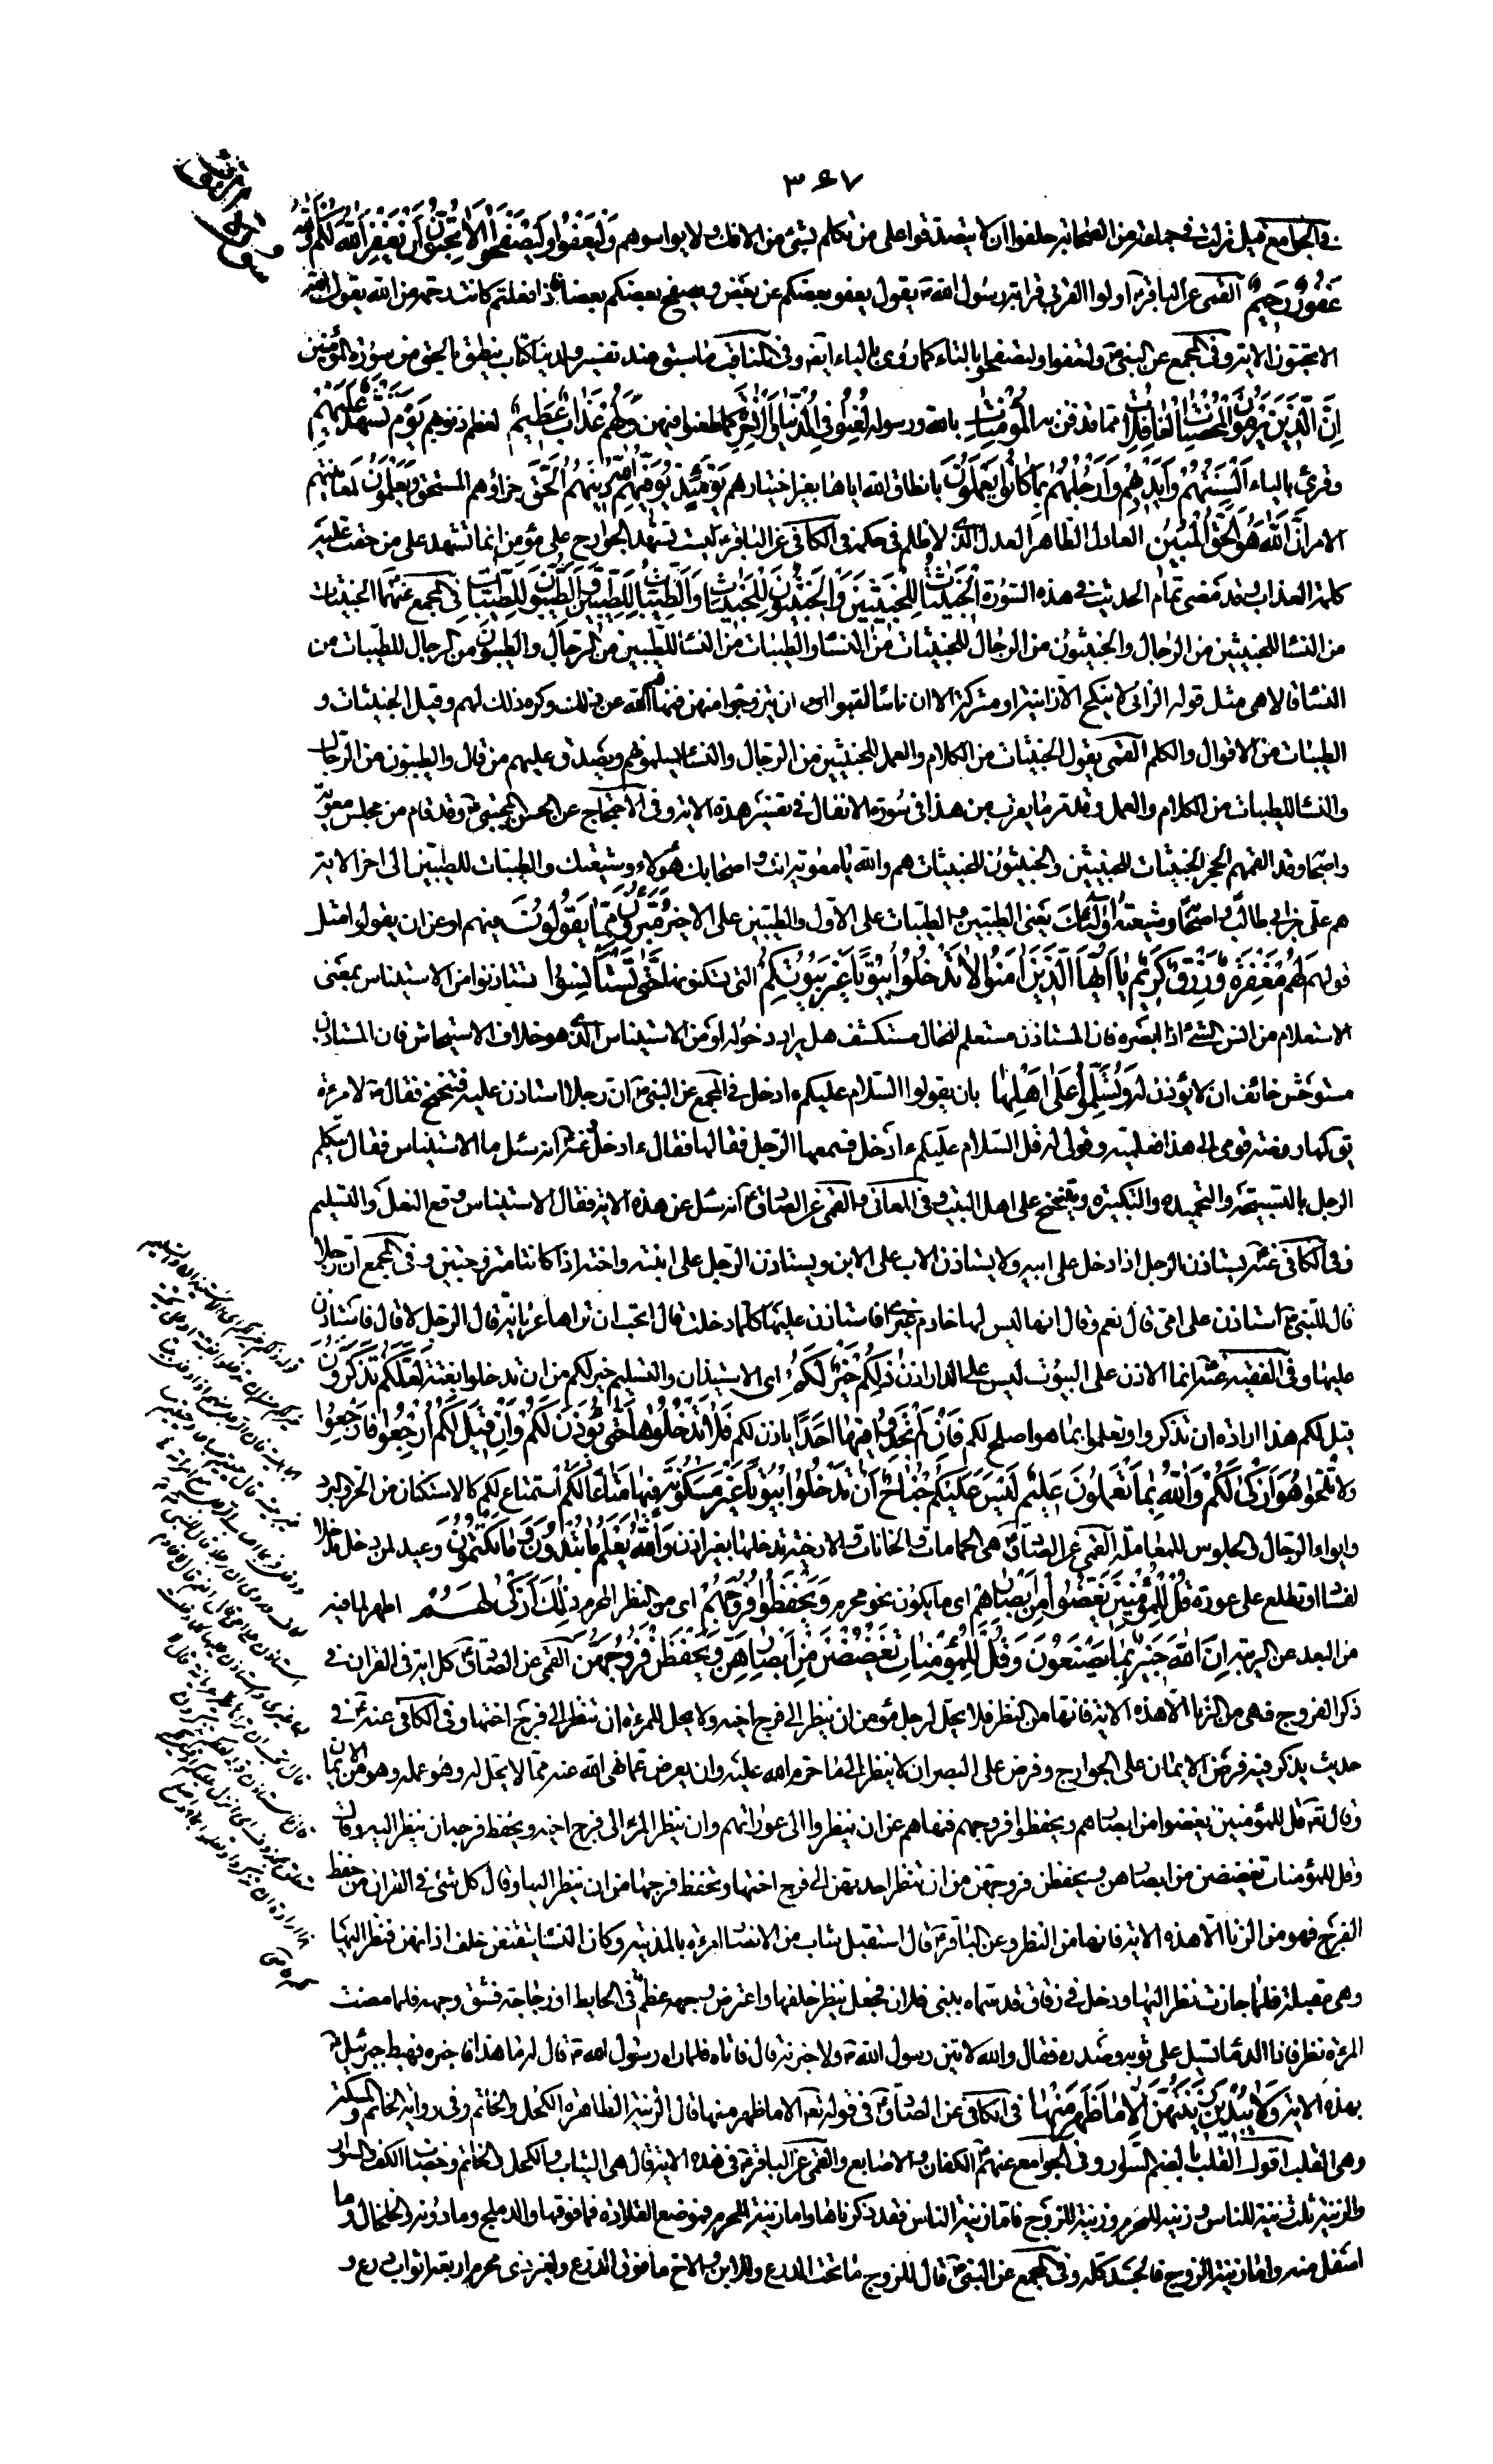 ٣٦٧
في الجوامع قيل نزلت في جماعة من الصحابة حلفوا ان لا يتصدقوا على من تكلم بشئ من الافك ولا يواسوهم وَلْيَعْفُوا وَلْيَصْفَحُوا اَلا تُحِبُّونَ اَنْ يَغْفِرَ اللهُ لَكُمْ وَاللهُ
غَفُورٌ رَحِيمٌ القمى عن الباقر ع اولوا القربى قرابة رسول الله ص يقول يعفو بعضكم عن بعض ويصفح بعضكم بعضا فاذا فعلتم كانت رحمة من الله يقول الله
الا تحبون الاية وفي المجمع عن النبي ص ولتعفوا ولتصفحوا بالتاء كما روى بالياء ايضا وفي المناقب ما سبق عند تفسير ولدينا كتاب ينطق بالحق من سورة المؤمنين
اِنَّ الَّذِينَ يَرْمُونَ الْمُحْصَنَاتِ الْغَافِلَاتِ مما قذفن به الْمُؤْمِنَاتِ بالله ورسوله لُعِنُوا فِي الدُّنْيَا وَالْآخِرَةِ كما طعنوا فيهن وَلَهُمْ عَذَابٌ عَظِيمٌ لعظم ذنوبهم يَوْمَ تَشْهَدُ عَلَيْهِمْ
وقرئ بالياء اَلْسِنَتُهُمْ وَاَيْدِيهِمْ وَاَرْجُلُهُمْ بِمَا كَانُوا يَعْمَلُونَ بانطاق الله اياها بغير اختيارهم يَوْمَئِذٍ يُوَفِّيهِمُ اللهُ دِينَهُمُ الْحَقَّ جزاؤهم المستحق وَيَعْلَمُونَ لمعاينتهم
الامر اَنَّ اللهَ هُوَ الْحَقُّ الْمُبِينُ العادل الظاهر العدل الذى لا ظلم في حكمه في الكافي عن الباقر ع ليست تشهد الجوارح على مؤمن انما تشهد على من حقت عليه
كلمة العذاب وقد مضى تمام الحديث في هذه السورة اَلْخَبِيثَاتُ لِلْخَبِيثِينَ وَالْخَبِيثُونَ لِلْخَبِيثَاتِ وَالطَّيِّبَاتُ لِلطَّيِّبِينَ وَالطَّيِّبُونَ لِلطَّيِّبَاتِ في المجمع عنهما الخبيثات
من النساء للخبيثين من الرجال والخبيثون من الرجال للخبيثات من النساء والطيبات من النساء للطيبين من الرجال والطيبون من الرجال للطيبات من
النساء قالا هى مثل قوله الزانى لا ينكح الا زانية او مشركة الا ان ناسا ان يتزوجوا منهن فنهاهم الله عن ذلك وكره ذلك لهم وقيل الخبيثات و
الطيبات من الاقوال والكلم القمى يقول الخبيثات من الكلام والعمل للخبيثين من الرجال والنساء يسلمونهم ويصدق عليهم من قال والطيبون من الرجال
والنساء للطيبات من الكلام والعمل وقد مر ما يقرب من هذا في سورة الانفال في تفسير هذه الاية وفي الاحتجاج عن الحسن المجتبى ع وقد قام من مجلس معوية
واصحابه وقد القمهم الحجر الخبيثات للخبيثين والخبيثون للخبيثات هم والله يا معوية انت واصحابك هؤلاء وشيعتك والطيبات للطيبين الى اخر الاية
هم على بن ابى طالب ع واصحابه وشيعته اُولٰئِكَ يعنى الطيبين والطيبات على الاول والطيبين على الاخير مُبَرَّؤُنَ مِمَّا يَقُولُونَ فيهم او عن ان يقولوا مثل
قولهم لَهُمْ مَغْفِرَةٌ وَرِزْقٌ كَرِيمٌ يَا اَيُّهَا الَّذِينَ آمَنُوا لَا تَدْخُلُوا بُيُوتًا غَيْرَ بُيُوتِكُمْ التى تسكنونها حَتَّى تَسْتَأْنِسُوا تستاذنوا من الاستيناس بمعنى
الاستعلام من انس الشئ اذا ابصره فان المستاذن مستعلم للحال مستكشف هل يراد دخوله او من الاستيناس الذى هو خلاف الاستيحاش فان المستاذن
مستوحش خائف ان لا يؤذن له وَتُسَلِّمُوا عَلَى اَهْلِهَا بان يقولوا السلام عليكم ءادخل في المجمع عن النبي ص ان رجلا استاذن عليه فتنحنح فقال ص لامرءة
يق لها روضة قومى الى هذا فعلميه وقولى له قل السلام عليكم ءادخل فسمعها الرجل فقالها فقال ءادخل وعنه ص انه سئل ما الاستيناس فقال يتكلم
الرجل بالتسبيحة والتحميدة والتكبيرة ويتنحنح على اهل البيت وفي المعانى والقمى عن الصادق ع انه سئل عن هذه الاية فقال الاستيناس وقع النعل والتسليم
وفي الكافي عنه ع يستاذن الرجل اذا دخل على ابيه ولا يستاذن الاب على الابن ويستاذن الرجل على ابنته واخته اذا كانتا متزوجتين وفي المجمع ان رجلا
قال للنبي ص استاذن على امى قال نعم وقال انها ليس لها خادم غيرى افاستاذن عليها كلما دخلت قال اتحب ان تراها عريانة قال الرجل لا قال فاستاذن
عليها وفي الفقيه عنه ع انما الاذن على البيوت ليس على الدار اذن ذٰلِكُمْ خَيْرٌ لَكُمْ اى الاستيذان والتسليم خير لكم من ان تدخلوا بغتة لَعَلَّكُمْ تَذَكَّرُونَ
قيل لكم هذا ارادة ان تذكروا وتعلموا بما هو اصلح لكم فَاِنْ لَمْ تَجِدُوا فِيهَا اَحَدًا ياذن لكم فَلَا تَدْخُلُوهَا حَتَّى يُؤْذَنَ لَكُمْ وَاِنْ قِيلَ لَكُمُ ارْجِعُوا فَارْجِعُوا
ولا تلحوا هُوَ اَزْكَى لَكُمْ وَاللهُ بِمَا تَعْمَلُونَ عَلِيمٌ لَيْسَ عَلَيْكُمْ جُنَاحٌ اَنْ تَدْخُلُوا بُيُوتًا غَيْرَ مَسْكُونَةٍ فِيهَا مَتَاعٌ لَكُمْ استمتاع لكم كالاستكنان من الحر والبرد
وايواء الرجال والجلوس للمعاملة القمى عن الصادق ع هى الحمامات والخانات والارحية تدخلها بغير اذن وَاللهُ يَعْلَمُ مَا تُبْدُونَ وَمَا تَكْتُمُونَ وعيد لمن دخل مدخلا
لفساد او تطلع على عورة قُلْ لِلْمُؤْمِنِينَ يَغُضُّوا مِنْ اَبْصَارِهِمْ اى ما يكون نحو محرم وَيَحْفَظُوا فُرُوجَهُمْ اى من النظر المحرم ذٰلِكَ اَزْكَى لَهُمْ اطهر لما فيه
من البعد عن الريبة اِنَّ اللهَ خَبِيرٌ بِمَا يَصْنَعُونَ وَقُلْ لِلْمُؤْمِنَاتِ يَغْضُضْنَ مِنْ اَبْصَارِهِنَّ وَيَحْفَظْنَ فُرُوجَهُنَّ القمى عن الصادق ع كل اية في القران في
ذكر الفروج فهى من الزنا الا هذه الاية فانها من النظر فلا يحل لرجل مؤمن ان ينظر الى فرج اخيه ولا يحل للمرءة ان تنظر الى فرج اختها وفي الكافي عنه ع في
حديث يذكر فيه فرض الايمان على الجوارح وفرض على البصر ان لا ينظر الى ما حرم الله عليه وان يعرض عما نهى الله عنه مما لا يحل له وهو عمله وهو من الايمان
وقال تعالى قل للمؤمنين يغضوا من ابصارهم ويحفظوا فروجهم فنهاهم عن ان ينظروا الى عوراتهم وان ينظر المرء الى فرج اخيه ويحفظ فرجه ان ينظر اليه وقال
وقل للمؤمنات يغضضن من ابصارهن ويحفظن فروجهن من ان تنظر احديهن الى فرج اختها وتحفظ فرجها من ان ينظر اليها وقال كل شئ في القران من حفظ
الفرج فهو من الزنا الا هذه الاية فانها من النظر وعن الباقر ع قال استقبل شاب من الانصار امرءة بالمدينة وكان النساء يتقنعن خلف اذانهن فنظر اليها
وهى مقبلة فلما جازت نظر اليها ودخل في زقاق قد سماه ببنى فلان فجعل ينظر خلفها واعترض وجهه عظم في الحايط او زجاجة فشق وجهه فلما مضت
المرءة نظر فاذا الدماء تسيل على ثوبه وصدره فقال والله لاتين رسول الله ص ولاخبرنه قال فاتاه فلما راه رسول الله ص قال له ما هذا فاخبره فهبط جبرئيل ع
بهذه الاية وَلَا يُبْدِينَ زِينَتَهُنَّ اِلَّا مَا ظَهَرَ مِنْهَا في الكافي عن الصادق ع في قوله تعالى الا ما ظهر منها قال الزينة الظاهرة الكحل والخاتم وفي رواية الخاتم والمسكة
وهى القلب اقول القلب بالضم السوار وفي الجوامع عنهم ع الكفان والاصابع والقمى عن الباقر ع في هذه الاية قال هى الثياب والكحل والخاتم وخضاب الكف والسوار
والزينة ثلث زينة للناس وزينة للمحرم وزينة للزوج فاما زينة الناس فقد ذكرناها واما زينة المحرم فموضع القلادة فما فوقها والدملج وما دونه والخلخال وما
اسفل منه واما زينة الزوج فالجسد كله وفي المجمع عن النبي ص قال للزوج ما تحت الدرع وللابن والاخ ما فوق الدرع ولغير ذى محرم اربعة اثواب درع و